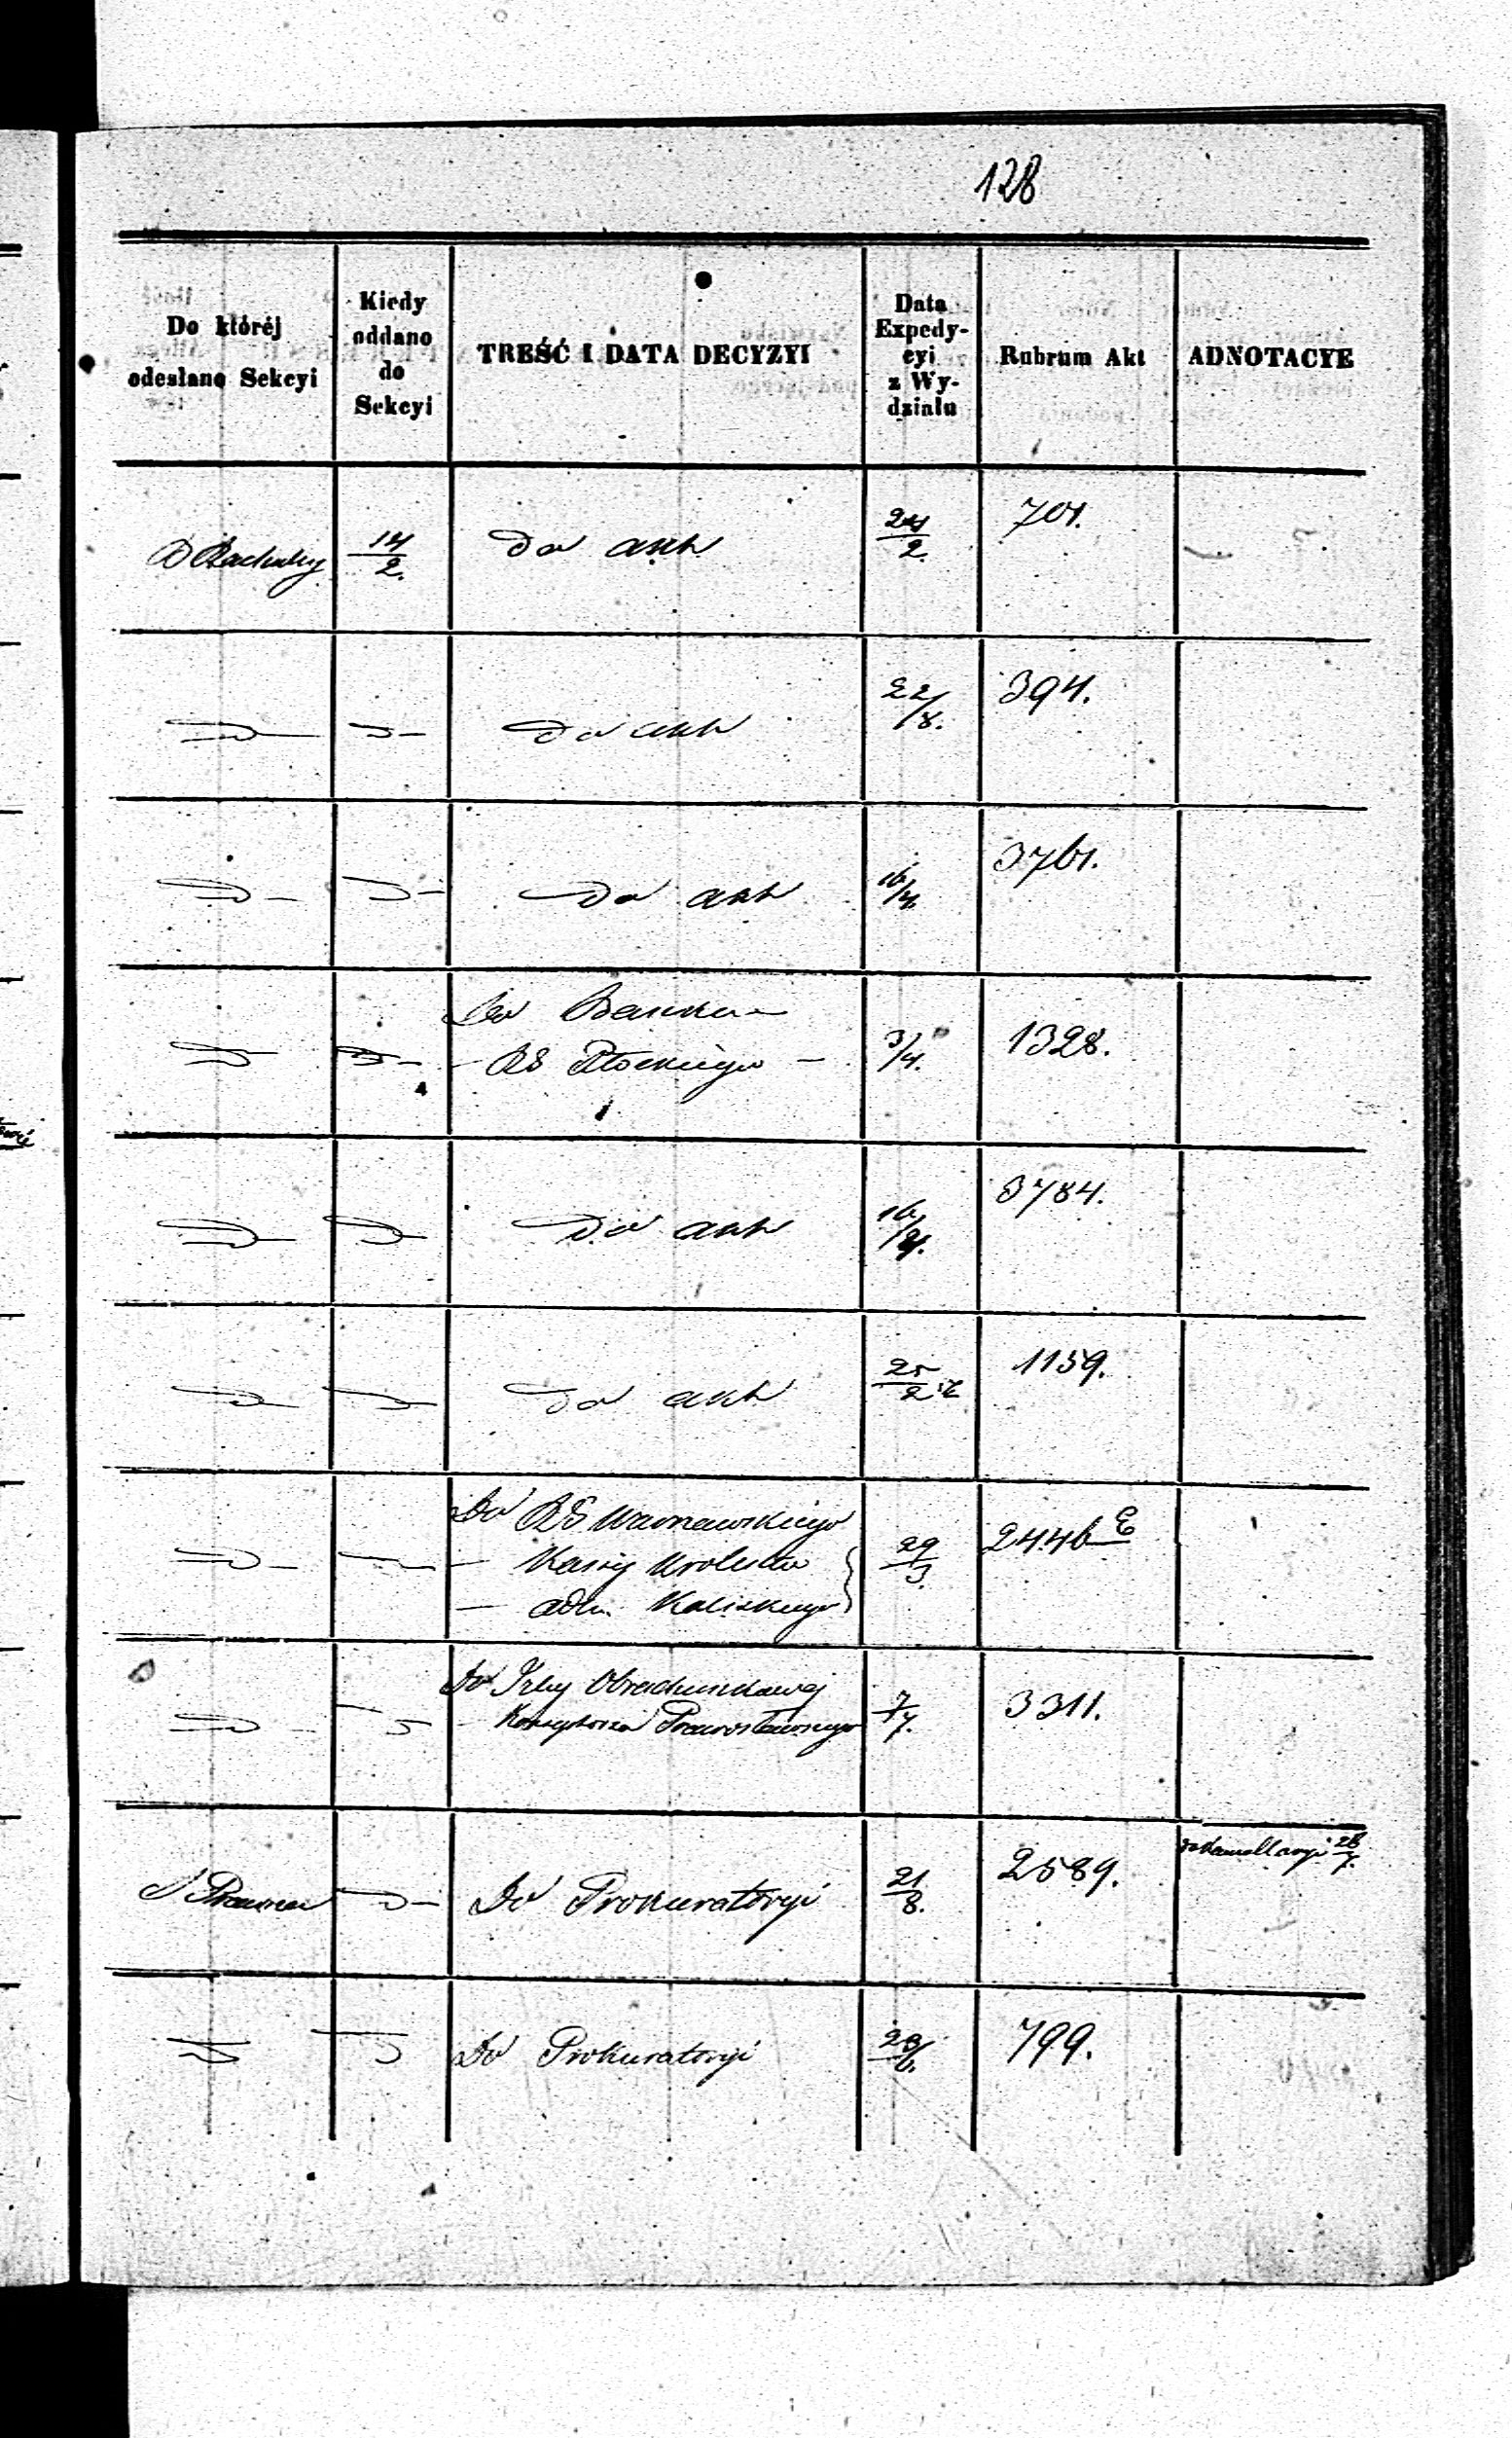 128
Do któréj odesłano Sekcyi
Kiedy oddano do Sekcyi
TREŚĆ I DATA DECYZYI
Data Expedycyi z Wydziału
Rubrum Akt
ADNOTACYE
14/2. Do akt 24/2. 701.
Do akt 22/8. 394.
Do akt 16/4. 3761.
Do Banku
- RG Płockiego - 3/4. 1328.
Do akt 16/4. 3784.
Do akt 25/2 1159.
Do RG Warszawskiego
- Kassy Królestwa 29/3. 2446 E
- adm. Kaliskiego
Do Izby Obrachunkowej
Konsystorza Prawosławnego 7/7. 3311.
S Prawna Do Prokuratoryi 21/8. 2589. do Kancellaryi 28/7.
Do Prokuratoryi 799.